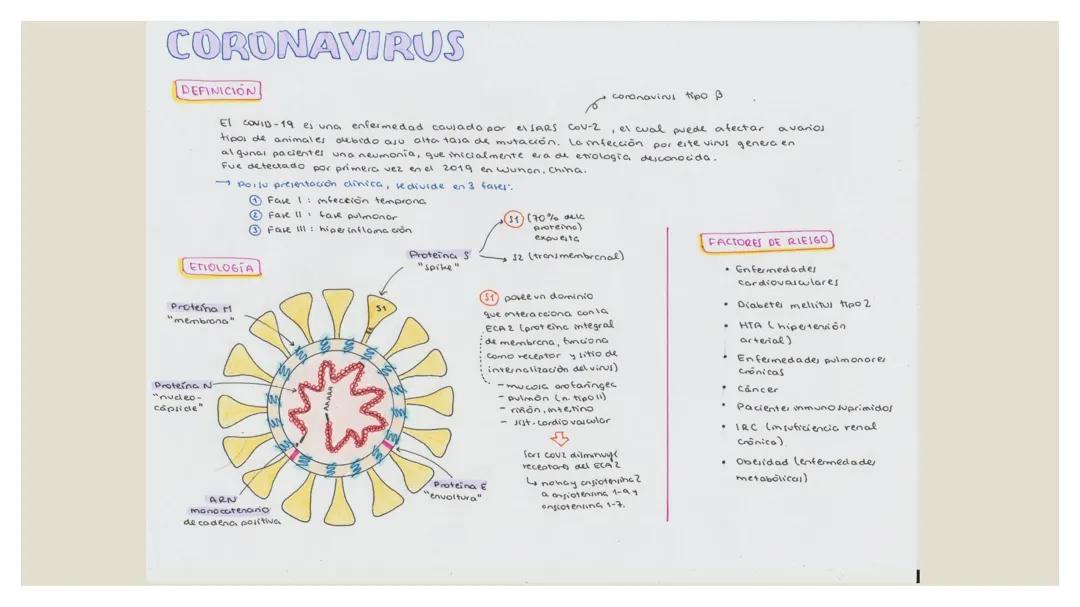 CORONAVIRUS
DEFINICIÓN
coronavirus tipo β
El COVID-19 es una enfermedad causada por el SARS CoV-2, el cual puede afectar a varios
tipos de animales debido a su alta tasa de mutación. La infección por este virus genera en
algunos pacientes una neumonía, que inicialmente era de etiología desconocida.
Fue detectado por primera vez en el 2019 en Wuhan, China.
→ Por su presentación clínica, se divide en 3 fases:
① Fase I : infección temprana
② Fase II : fase pulmonar
③ Fase III : hiperinflamación
ETIOLOGÍA
Proteína S
"spike"
S1 (70% de la
proteína)
expuesta
S2 (transmembranal)
Proteína M
"membrana"
S1
Proteína N
"nucleo-
cápside"
AAAAA
ARN
monocatenario
de cadena positiva
Proteína E
"envoltura"
S1 posee un dominio
que interacciona con la
ECA2 (proteína integral
de membrana, funciona
como receptor y sitio de
internalización del virus)
- mucosa orofaringea
- pulmón (n. tipo II)
- riñón, intestino
- sist. cardiovascular
Sars CoV2 disminuye
receptores del ECA2
↳ no hay angiotensina 2
a angiotensina 1-9 y
angiotensina 1-7.
FACTORES DE RIESGO
• Enfermedades
cardiovasculares
• Diabetes mellitus tipo 2
• HTA (hipertensión
arterial)
• Enfermedades pulmonares
crónicas
• Cáncer
• Pacientes inmunosuprimidos
• IRC (insuficiencia renal
crónica)
• Obesidad (enfermedades
metabólicas)